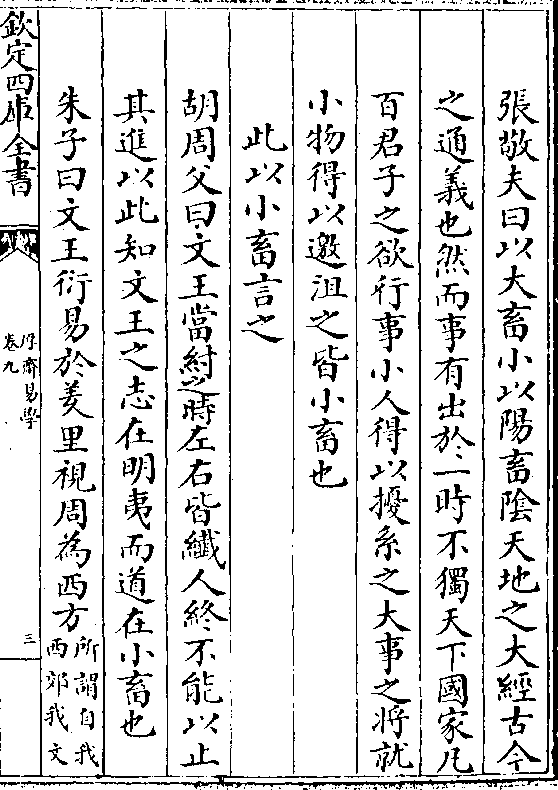 張敬夫曰以大畜小以陽畜陰天地之大經古今
之通義也然而事有出於一時不獨天下國家凡
百君子之欲行事小人得以擾系之大事之將就
小物得以邀沮之皆小畜也
此以小畜言之
胡周父曰文王當紂之時左右皆纖人終不能以止
其進以此知文王之志在明夷而道在小畜也
朱子曰文王衍易於羑里視周為西方所謂自我
西郊我文
欽定四庫全書
厚齋易學
卷九
三